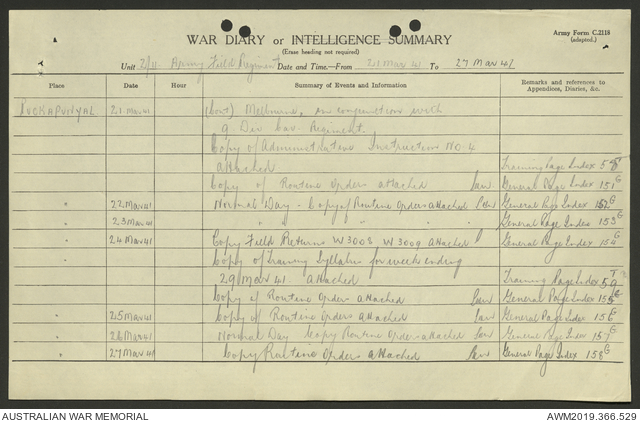 WAR DIARY or INTELLIGENCE SUMMARY
(Erase heading not required)
Army Form C.2118
(adapted.)
Unit 2/11 Army Field Regiment Date and Time.—From 21 Mar 41 To 27 Mar 41
Place Date Hour Summary of Events and Information Remarks and references to Appendices, Diaries, &c.
PUCKAPUNYAL 21 Mar 41 (Cont) Melbourne, in conjunction with
9 Div Cav. Regiment.
Copy of Administrative Instruction No 4
attached Training Page Index 58
Copy of Routine Orders attached General Page Index 151 G
" 22 Mar 41 Normal Day - Copy of Routine Orders attached General Page Index 152 G
" 23 Mar 41 " " " " " General Page Index 153 G
" 24 Mar 41 Copy Field Returns W3008 W3009 attached General Page Index 154 G
Copy of Training Syllabus for week ending
29 Mar 41. attached Training Page Index 59 T
Copy of Routine Orders attached General Page Index 155 G
" 25 Mar 41 Copy of Routine Orders attached General Page Index 156 G
" 26 Mar 41 Normal Day Copy Routine Orders attached General Page Index 157 G
" 27 Mar 41 Copy Routine Orders attached General Page Index 158 G
AUSTRALIAN WAR MEMORIAL AWM2019.366.529